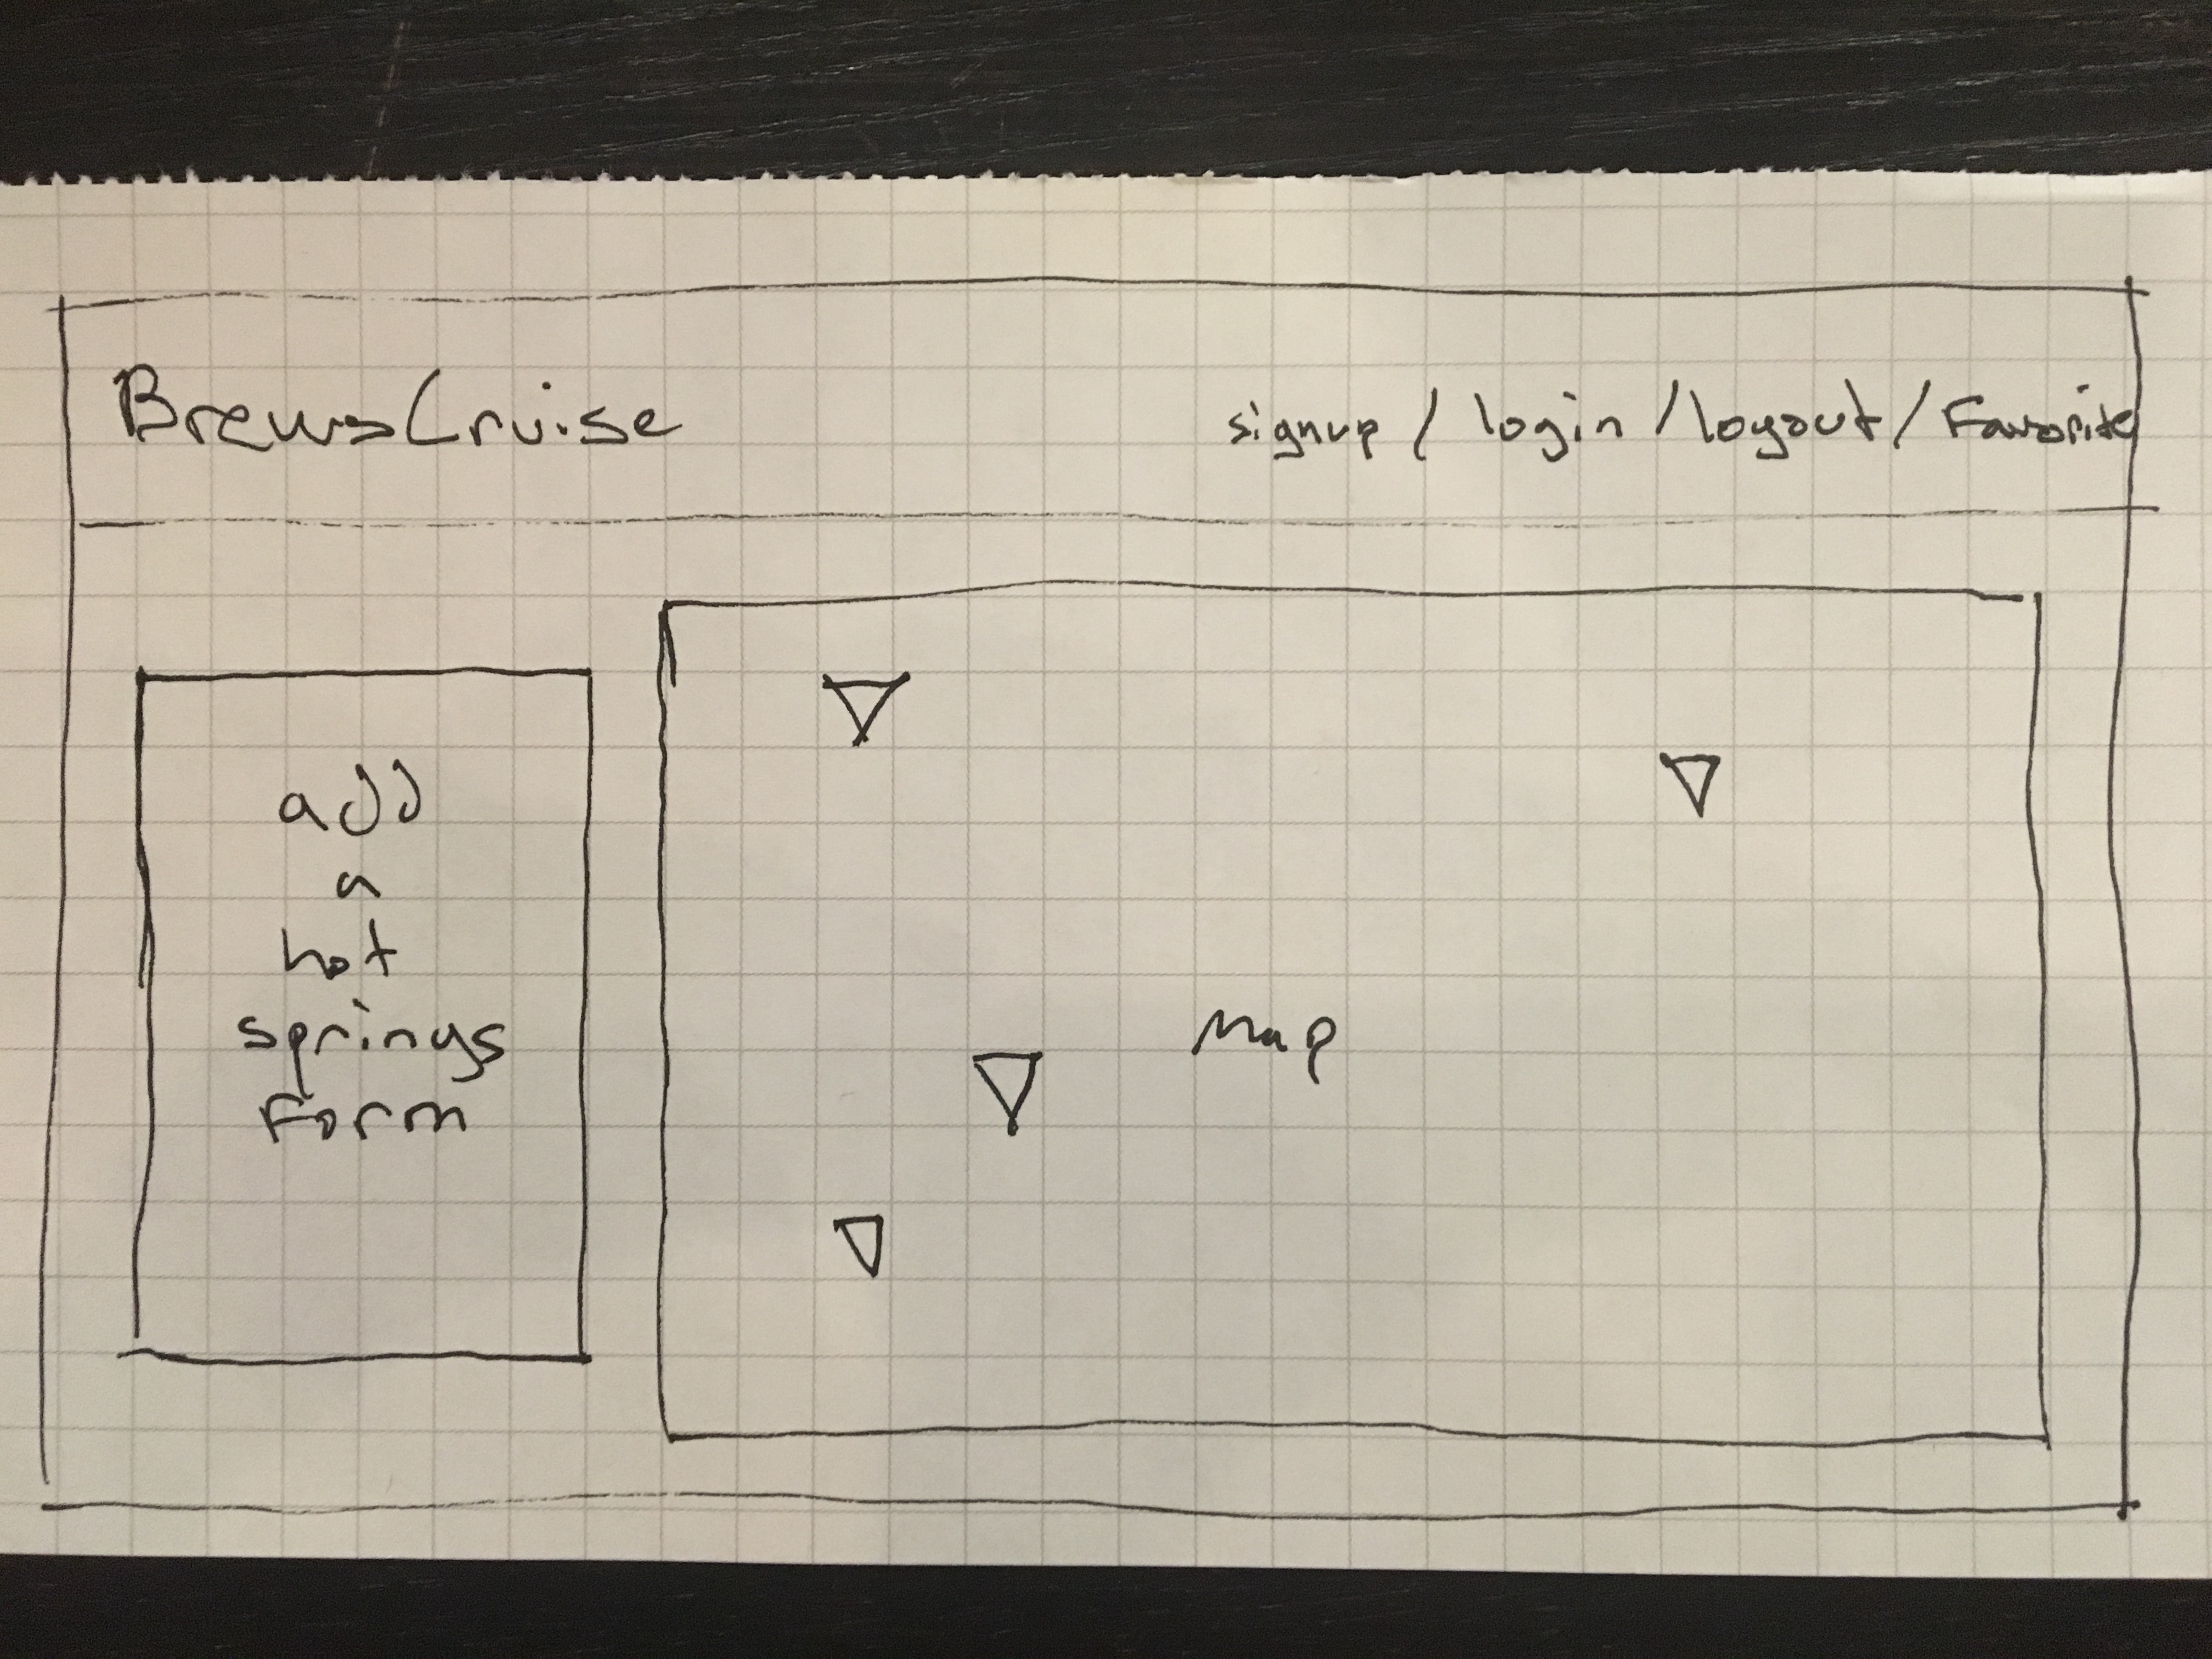 BrewsCruise
signup / login / logout / Favorite
add
a
hot
springs
Form
Map